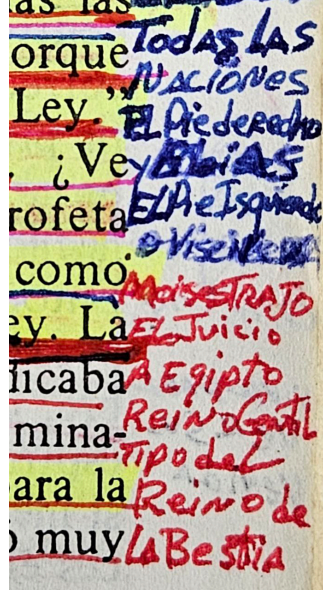 as las
orque
Ley.”
. ¿Ve
rofeta
como
ey. La
licaba
mina-
ara la
muy
TodAs LAS
NACIONES
El Piederecho
y Elias
El Pie Isquierdo
o Viseversa
Moises TRAJO
El Juicio
A Egipto
Reino Gentil
Tipo del
Reino de
La Bestia